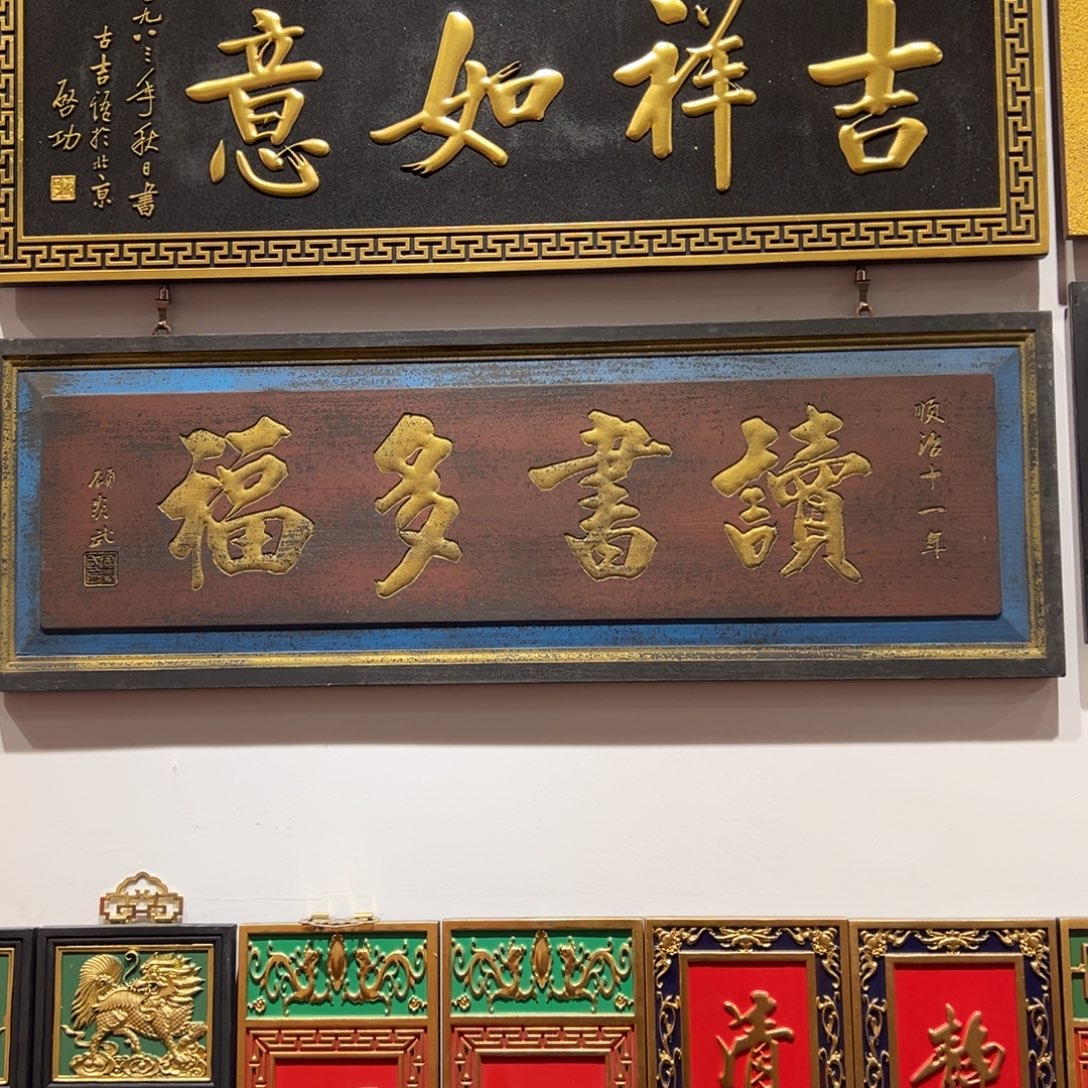 吉祥如意
九八三年秋日書
古吉語於北京
啓功
順治十一年
讀書多福
顧炎武
清